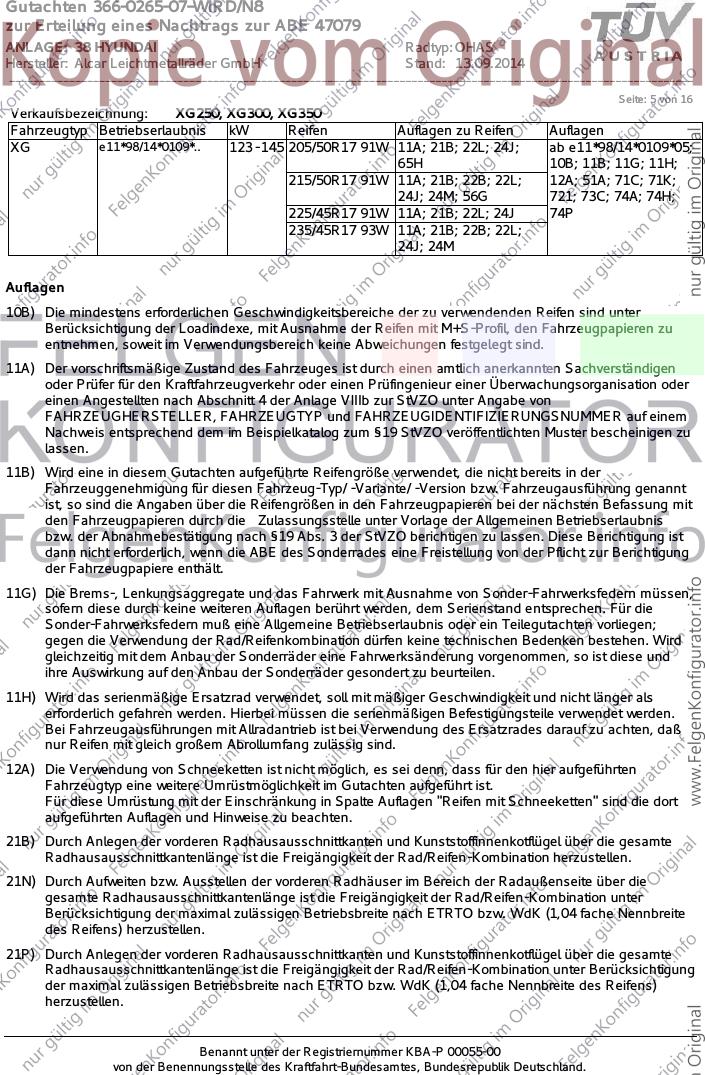 Gutachten 366-0265-07-WIRD/N8
zur Erteilung eines Nachtrags zur ABE 47079
ANLAGE: 38 HYUNDAI Radtyp: OHAS
Hersteller: Alcar Leichtmetallräder GmbH Stand: 13.09.2014
TÜV
AUSTRIA
Kopie vom Original
Seite: 5 von 16
Verkaufsbezeichnung: XG250, XG300, XG350
Fahrzeugtyp Betriebserlaubnis kW Reifen Auflagen zu Reifen Auflagen
XG e11*98/14*0109*.. 123 -145 205/50R17 91W 11A; 21B; 22L; 24J; ab e11*98/14*0109*05;
65H 10B; 11B; 11G; 11H;
215/50R17 91W 11A; 21B; 22B; 22L; 12A; 51A; 71C; 71K;
24J; 24M; 56G 721; 73C; 74A; 74H;
225/45R17 91W 11A; 21B; 22L; 24J 74P
235/45R17 93W 11A; 21B; 22B; 22L;
24J; 24M
Auflagen
10B) Die mindestens erforderlichen Geschwindigkeitsbereiche der zu verwendenden Reifen sind unter
Berücksichtigung der Loadindexe, mit Ausnahme der Reifen mit M+S-Profil, den Fahrzeugpapieren zu
entnehmen, soweit im Verwendungsbereich keine Abweichungen festgelegt sind.
11A) Der vorschriftsmäßige Zustand des Fahrzeuges ist durch einen amtlich anerkannten Sachverständigen
oder Prüfer für den Kraftfahrzeugverkehr oder einen Prüfingenieur einer Überwachungsorganisation oder
einen Angestellten nach Abschnitt 4 der Anlage VIIIb zur StVZO unter Angabe von
FAHRZEUGHERSTELLER, FAHRZEUGTYP und FAHRZEUGIDENTIFIZIERUNGSNUMMER auf einem
Nachweis entsprechend dem im Beispielkatalog zum §19 StVZO veröffentlichten Muster bescheinigen zu
lassen.
11B) Wird eine in diesem Gutachten aufgeführte Reifengröße verwendet, die nicht bereits in der
Fahrzeuggenehmigung für diesen Fahrzeug-Typ/ -Variante/ -Version bzw. Fahrzeugausführung genannt
ist, so sind die Angaben über die Reifengrößen in den Fahrzeugpapieren bei der nächsten Befassung mit
den Fahrzeugpapieren durch die Zulassungsstelle unter Vorlage der Allgemeinen Betriebserlaubnis
bzw. der Abnahmebestätigung nach §19 Abs. 3 der StVZO berichtigen zu lassen. Diese Berichtigung ist
dann nicht erforderlich, wenn die ABE des Sonderrades eine Freistellung von der Pflicht zur Berichtigung
der Fahrzeugpapiere enthält.
11G) Die Brems-, Lenkungsaggregate und das Fahrwerk mit Ausnahme von Sonder-Fahrwerksfedern müssen,
sofern diese durch keine weiteren Auflagen berührt werden, dem Serienstand entsprechen. Für die
Sonder-Fahrwerksfedern muß eine Allgemeine Betriebserlaubnis oder ein Teilegutachten vorliegen;
gegen die Verwendung der Rad/Reifenkombination dürfen keine technischen Bedenken bestehen. Wird
gleichzeitig mit dem Anbau der Sonderräder eine Fahrwerksänderung vorgenommen, so ist diese und
ihre Auswirkung auf den Anbau der Sonderräder gesondert zu beurteilen.
11H) Wird das serienmäßige Ersatzrad verwendet, soll mit mäßiger Geschwindigkeit und nicht länger als
erforderlich gefahren werden. Hierbei müssen die serienmäßigen Befestigungsteile verwendet werden.
Bei Fahrzeugausführungen mit Allradantrieb ist bei Verwendung des Ersatzrades darauf zu achten, daß
nur Reifen mit gleich großem Abrollumfang zulässig sind.
12A) Die Verwendung von Schneeketten ist nicht möglich, es sei denn, dass für den hier aufgeführten
Fahrzeugtyp eine weitere Umrüstmöglichkeit im Gutachten aufgeführt ist.
Für diese Umrüstung mit der Einschränkung in Spalte Auflagen "Reifen mit Schneeketten" sind die dort
aufgeführten Auflagen und Hinweise zu beachten.
21B) Durch Anlegen der vorderen Radhausausschnittkanten und Kunststoffinnenkotflügel über die gesamte
Radhausausschnittkantenlänge ist die Freigängigkeit der Rad/Reifen-Kombination herzustellen.
21N) Durch Aufweiten bzw. Ausstellen der vorderen Radhäuser im Bereich der Radaußenseite über die
gesamte Radhausausschnittkantenlänge ist die Freigängigkeit der Rad/Reifen-Kombination unter
Berücksichtigung der maximal zulässigen Betriebsbreite nach ETRTO bzw. WdK (1,04 fache Nennbreite
des Reifens) herzustellen.
21P) Durch Anlegen der vorderen Radhausausschnittkanten und Kunststoffinnenkotflügel über die gesamte
Radhausausschnittkantenlänge ist die Freigängigkeit der Rad/Reifen-Kombination unter Berücksichtigung
der maximal zulässigen Betriebsbreite nach ETRTO bzw. WdK (1,04 fache Nennbreite des Reifens)
herzustellen.
Benannt unter der Registriernummer KBA-P 00055-00
von der Benennungsstelle des Kraftfahrt-Bundesamtes, Bundesrepublik Deutschland.
FELGEN
KONFIGURATOR
FelgenKonfigurator.info
www.FelgenKonfigurator.info
nur gültig im Original